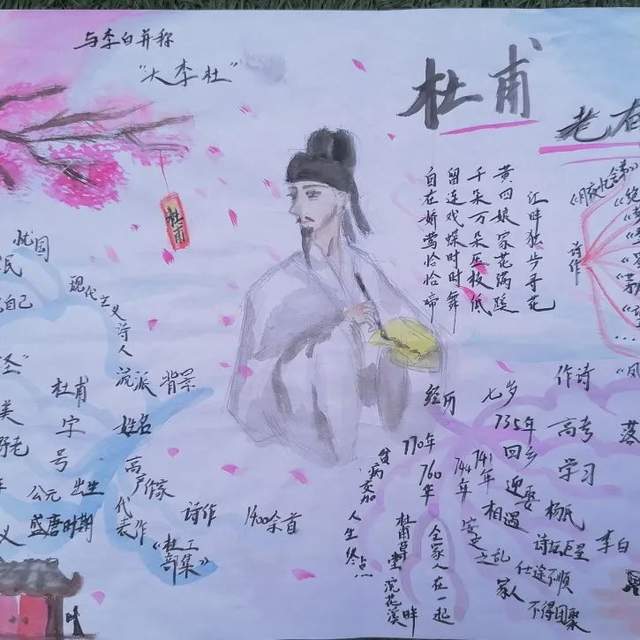 与李白并称
"大李杜"
杜甫
杜甫
江畔独步寻花
黄四娘家花满蹊
千朵万朵压枝低
留连戏蝶时时舞
自在娇莺恰恰啼
诗作
忧国
民
自己
现代主义诗人
流派
背景
姓名
杜甫
字
号
公元
出生
盛唐时期
代表作
诗作
1400余首
经历
七岁
作诗
735年
回乡
高考
学习
741年
迎娶
杨氏
744年
相遇
诗坛巨星
李白
安史之乱
家人
仕途不顺
不得团聚
760年
全家人在一起
杜甫草堂
浣花溪
畔
770年
贫病交加
人生终点